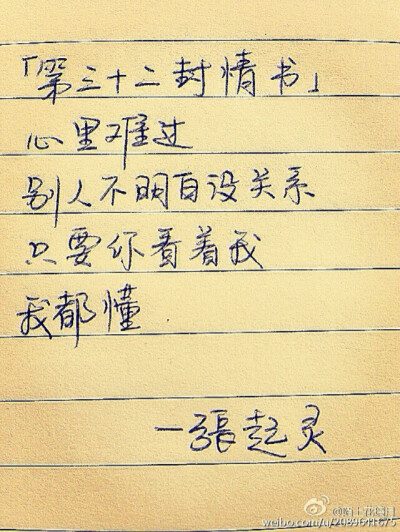 「第三十二封情书」
心里难过
别人不明白没关系
只要你看着我
我都懂
—張起灵